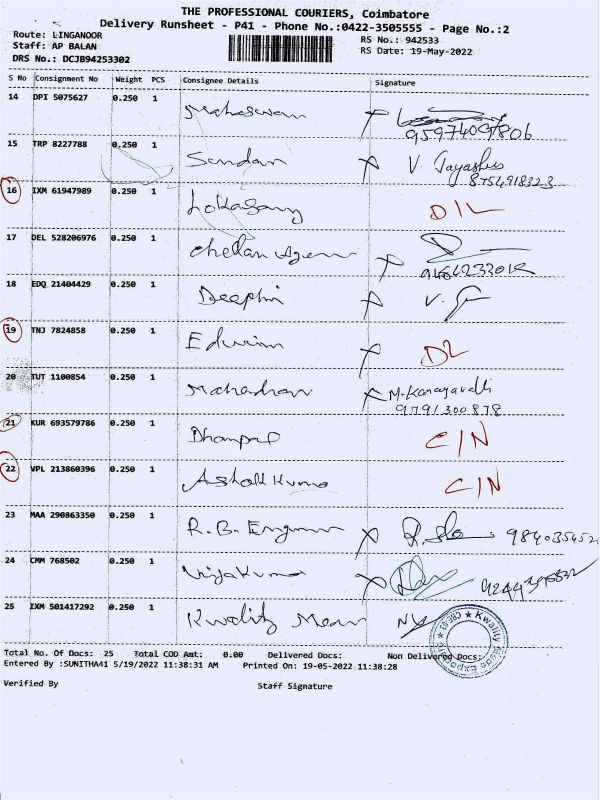 THE PROFESSIONAL COURIERS, Coimbatore
Delivery Runsheet - P41 - Phone No.:0422-3505555 - Page No.:2
Route: LINGANOOR RS No.: 942533
Staff: AP BALAN RS Date: 19-May-2022
DRS No.: DCJB94253302
S No Consignment No Weight PCS Consignee Details Signature
14 DPI 5075627 0.250 1 Maheswan
9597409806
15 TRP 8227788 0.250 1 Sandan V. Jayashree
8754918323
16 IXM 61947989 0.250 1 D/L
17 DEL 528206976 0.250 1
18 EDQ 21404429 0.250 1 Deephi
19 TNJ 7824858 0.250 1 Edwin DL
20 TUT 1100854 0.250 1 Mahadhan
9791300878
21 KUR 693579786 0.250 1 C/N
22 VPL 213860396 0.250 1 Ashok Kuma C/N
23 MAA 290863350 0.250 1 R.B. 984035452
24 CMM 768502 0.250 1 Vijakuma
25 IXM 501417292 0.250 1 Kwality Mean
Total No. Of Docs: 25 Total COD Amt: 0.00 Delivered Docs: Non Delivered Docs:
Entered By :SUNITHA41 5/19/2022 11:38:31 AM Printed On: 19-05-2022 11:38:28
Verified By Staff Signature